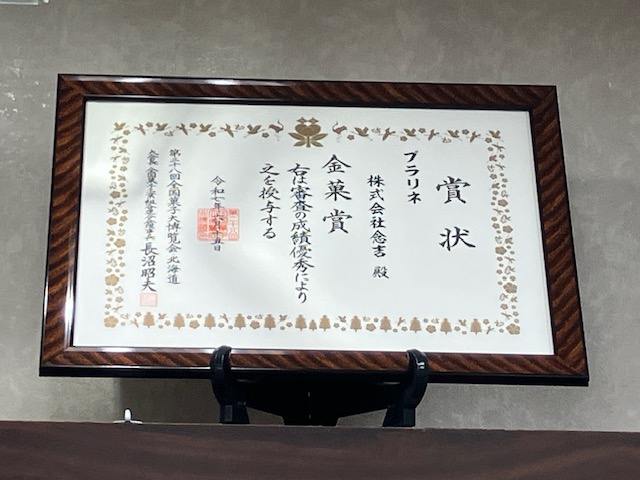 賞状
プラリネ
株式会社念吉 殿
金菓賞
右は審査の成績優秀により
之を授与する
令和七年 月十五日
第二十八回全国菓子大博覧会 北海道
長沼昭夫